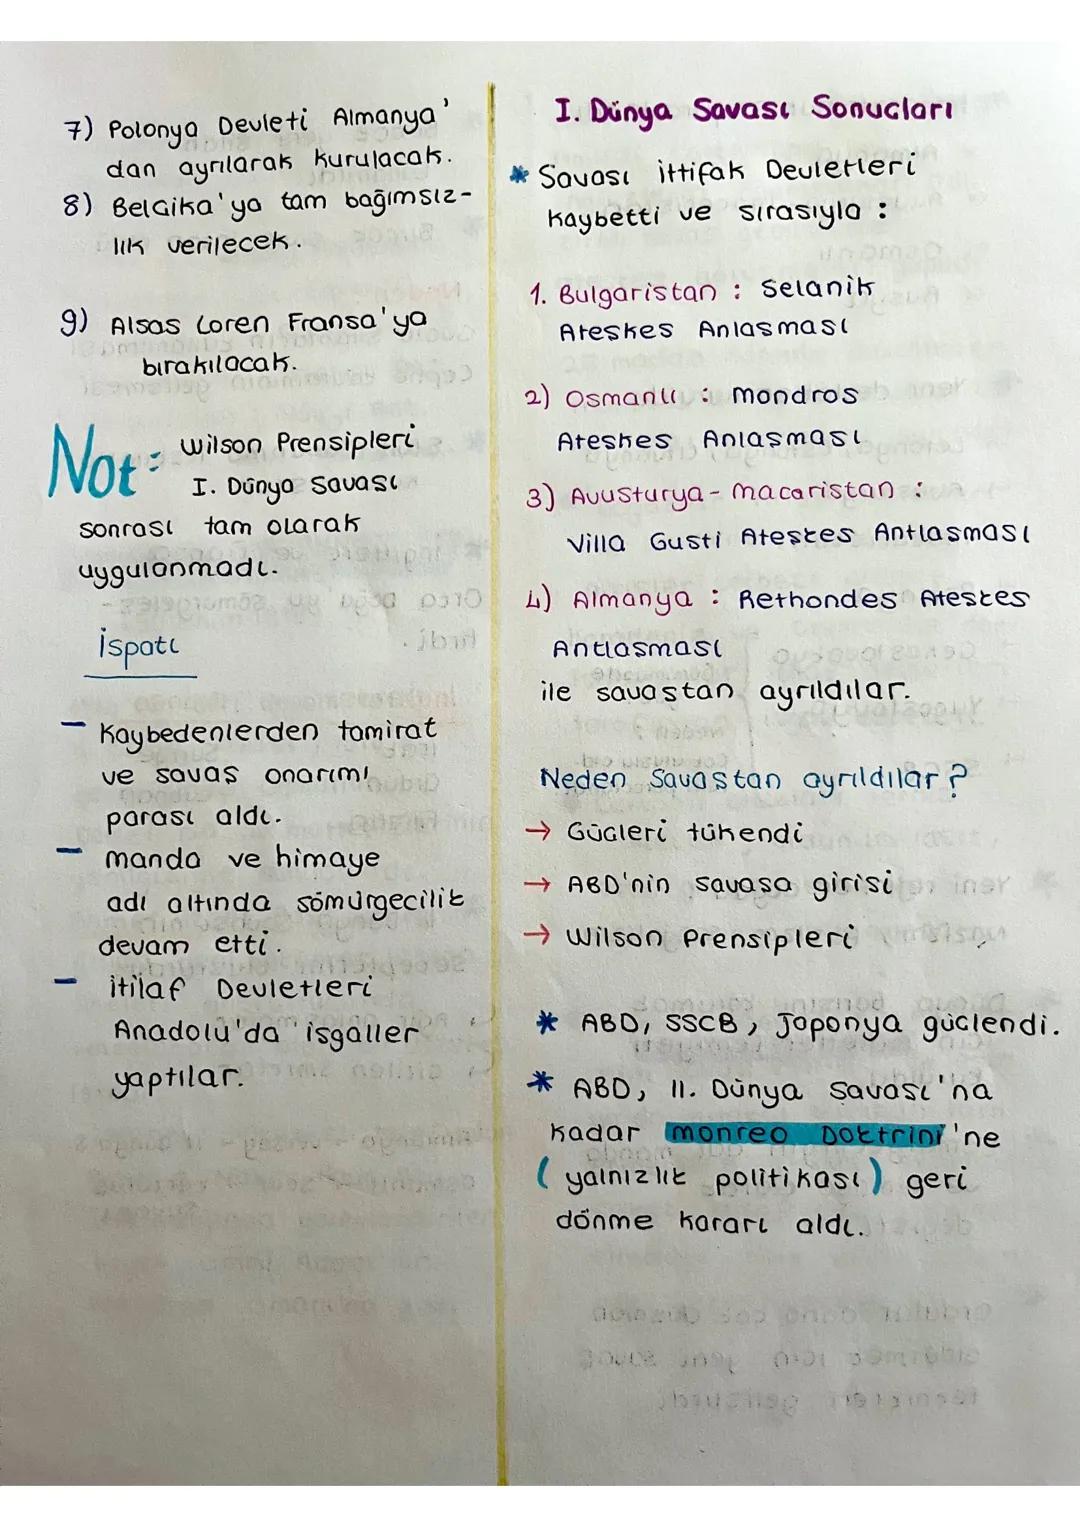 7) Polonya Devleti Almanya'
dan ayrılarak kurulacak.
8) Belçika'ya tam bağımsız-
lık verilecek.
9) Alsas Loren Fransa'ya
bırakılacak.
Not: Wilson Prensipleri
I. Dünya Savaşı
sonrası tam olarak
uygulanmadı.
İspatı
- Kaybedenlerden tamirat
ve savaş onarımı
parası aldı.
- manda ve himaye
adı altında sömürgecilik
devam etti.
- itilaf Devletleri
Anadolu'da işgaller
yaptılar.
I. Dünya Savası Sonucları
* Savası ittifak Devletleri
kaybetti ve sırasıyla :
1. Bulgaristan : Selanik
Ateşkes Anlasması
2) Osmanlı : mondros
Ateskes Anlaşması
3) Avusturya - macaristan :
Villa Gusti Ateşkes Antlasması
4) Almanya : Rethondes Ateskes
Antlasması
ile savaştan ayrıldılar.
Neden Savastan ayrıldılar?
→ Gücleri tükendi
→ ABD'nin savasa girisi
→ Wilson Prensipleri
* ABD, SSCB, Japonya güçlendi.
* ABD, II. Dünya Savası'na
kadar monreo Doktrini'ne
(yalnızlık politikası) geri
dönme kararı aldı.